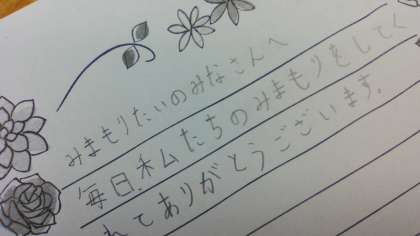 みまもりたいのみなさんへ
毎日、私たちのみまもりをしてく
れてありがとうございます。